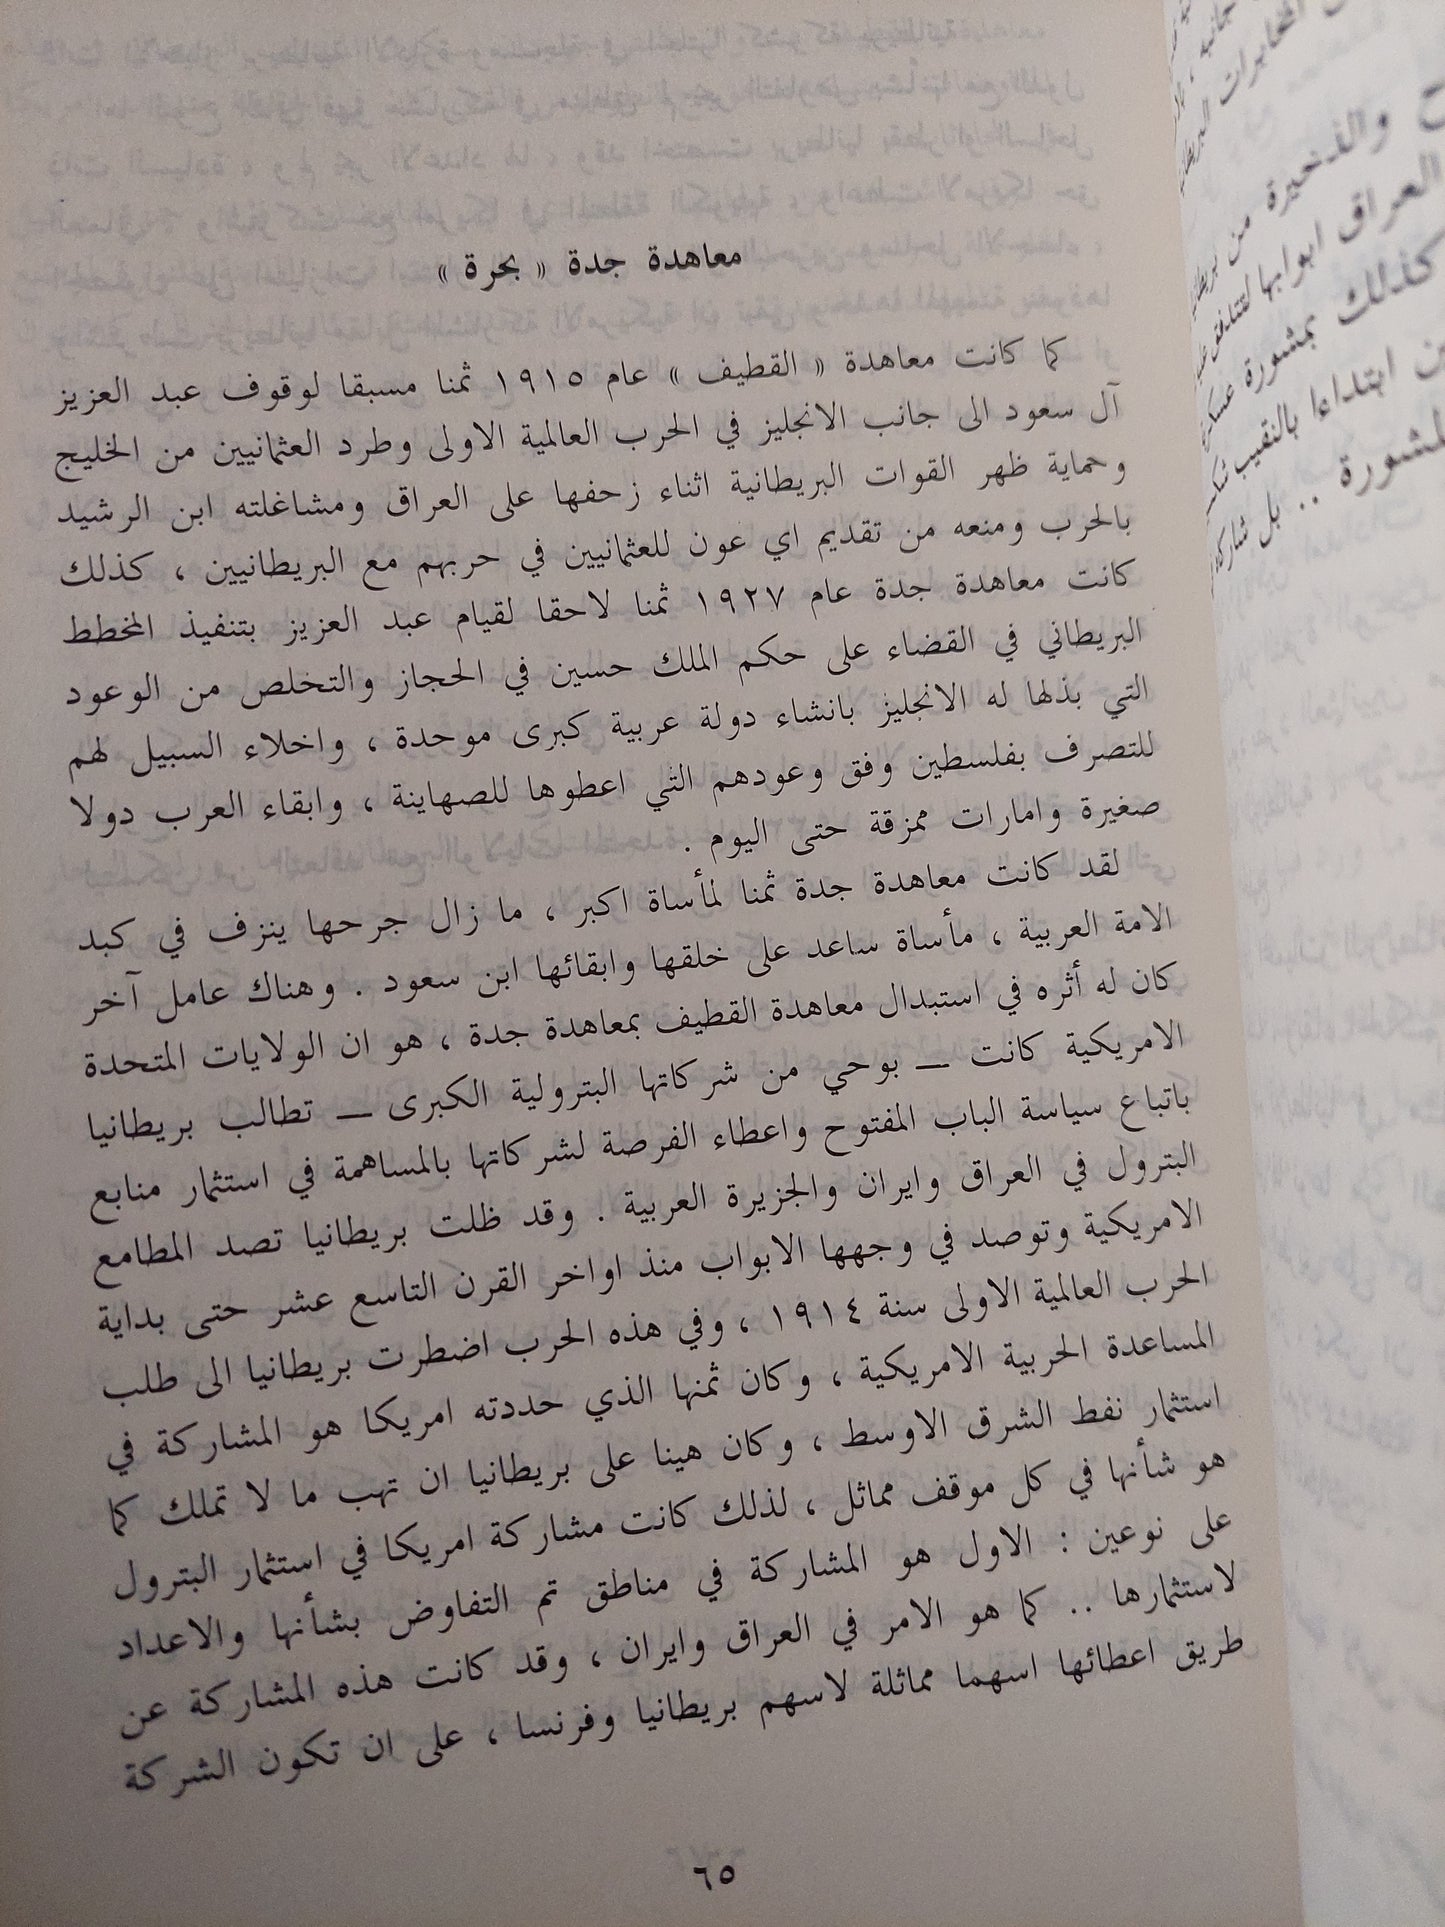 معاهدة جدة « بحرة »
كما كانت معاهدة « القطيف » عام ١٩١٥ ثمنا مسبقا لوقوف عبد العزيز
آل سعود الى جانب الانجليز في الحرب العالمية الاولى وطرد العثمانيين من الخليج
وحماية ظهر القوات البريطانية اثناء زحفها على العراق ومشاغلته ابن الرشيد
بالحرب ومنعه من تقديم اي عون للعثمانيين في حربهم مع البريطانيين ، كذلك
كانت معاهدة جدة عام ١٩٢٧ ثمنا لاحقا لقيام عبد العزيز بتنفيذ المخطط
البريطاني في القضاء على حكم الملك حسين في الحجاز والتخلص من الوعود
التي بذلها له الانجليز بانشاء دولة عربية كبرى موحدة ، واخلاء السبيل لهم
للتصرف بفلسطين وفق وعودهم التي اعطوها للصهاينة ، وابقاء العرب دولا
صغيرة وامارات ممزقة حتى اليوم .
لقد كانت معاهدة جدة ثمنا لمأساة اكبر ، ما زال جرحها ينزف في كبد
الامة العربية ، مأساة ساعد على خلقها وابقائها ابن سعود . وهناك عامل آخر
كان له أثره في استبدال معاهدة القطيف بمعاهدة جدة ، هو ان الولايات المتحدة
الامريكية كانت — بوحي من شركاتها البترولية الكبرى — تطالب بريطانيا
باتباع سياسة الباب المفتوح واعطاء الفرصة لشركاتها بالمساهمة في استثمار منابع
البترول في العراق وايران والجزيرة العربية . وقد ظلت بريطانيا تصد المطامع
الامريكية وتوصد في وجهها الابواب منذ اواخر القرن التاسع عشر حتى بداية
الحرب العالمية الاولى سنة ١٩١٤ ، وفي هذه الحرب اضطرت بريطانيا الى طلب
المساعدة الحربية الامريكية ، وكان ثمنها الذي حددته امريكا هو المشاركة في
استثمار نفط الشرق الاوسط ، وكان هينا على بريطانيا ان تهب ما لا تملك كما
هو شأنها في كل موقف مماثل ، لذلك كانت مشاركة امريكا في استثمار البترول
على نوعين : الاول هو المشاركة في مناطق تم التفاوض بشأنها والاعداد
لاستثمارها .. كما هو الامر في العراق وايران ، وقد كانت هذه المشاركة عن
طريق اعطائها اسهما مماثلة لاسهم بريطانيا وفرنسا ، على ان تكون الشركة
٦٥
والذخيرة من
العراق ابوابها
كذلك بمشورة
ابتداءا بالنقيب
للمشورة .. بل